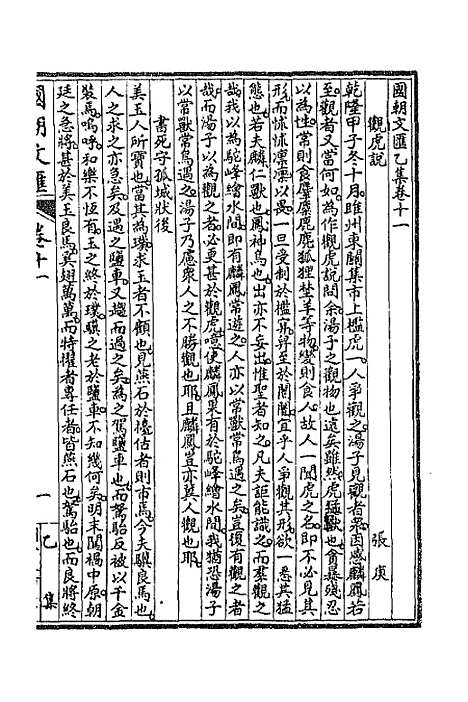 國朝文匯乙集卷十一
觀虎說
張庚
乾隆甲子冬十月睢州東關集市上檻虎一人爭觀之湯子見觀者衆因感麟鳳若
至觀者又當何如為作觀虎說問余湯子之觀物也遠矣雖然虎猛獸也貪暴殘忍
以為性常則食麞麋麂鹿狐狸埜羊等物變則食人故人一聞虎之名即不必見其
形而怵怵凜凜以畏一旦受制於檻穽舁至於闤闠宜乎人爭觀其形欲一悉其猛
態也若夫麟仁獸也鳳神鳥也出亦不妄出惟聖者知之凡夫詎能識之而羣觀之
哉我以為駝峰繪水間即有麟鳳常遊之人亦以常獸常鳥遇之矣豈復有觀之者
哉而湯子以為觀之者必更甚於觀虎噫使麟鳳果有於駝峰繪水間我猶恐湯子
以常獸常鳥遇之湯子乃慮衆人之不勝觀也耶且麟鳳豈亦冀人觀也耶
書死守孤城狀後
美玉人所寶也當其為璞求玉者不顧也見燕石於擔估者則市焉今夫騏良馬也
人之求之亦急矣及遇之鹽車又趨而過之矣為之駕鹽車也而駑駘反被以千金
裝焉嗚呼和樂不恆有玉之終於璞騏之老於鹽車不知幾何矣明末闖禍中原朝
廷之急將甚於美玉良馬奚翅萬萬而特擢者專任者皆燕石也駑駘也而良將終
國朝文匯
卷十一
一
乙
集